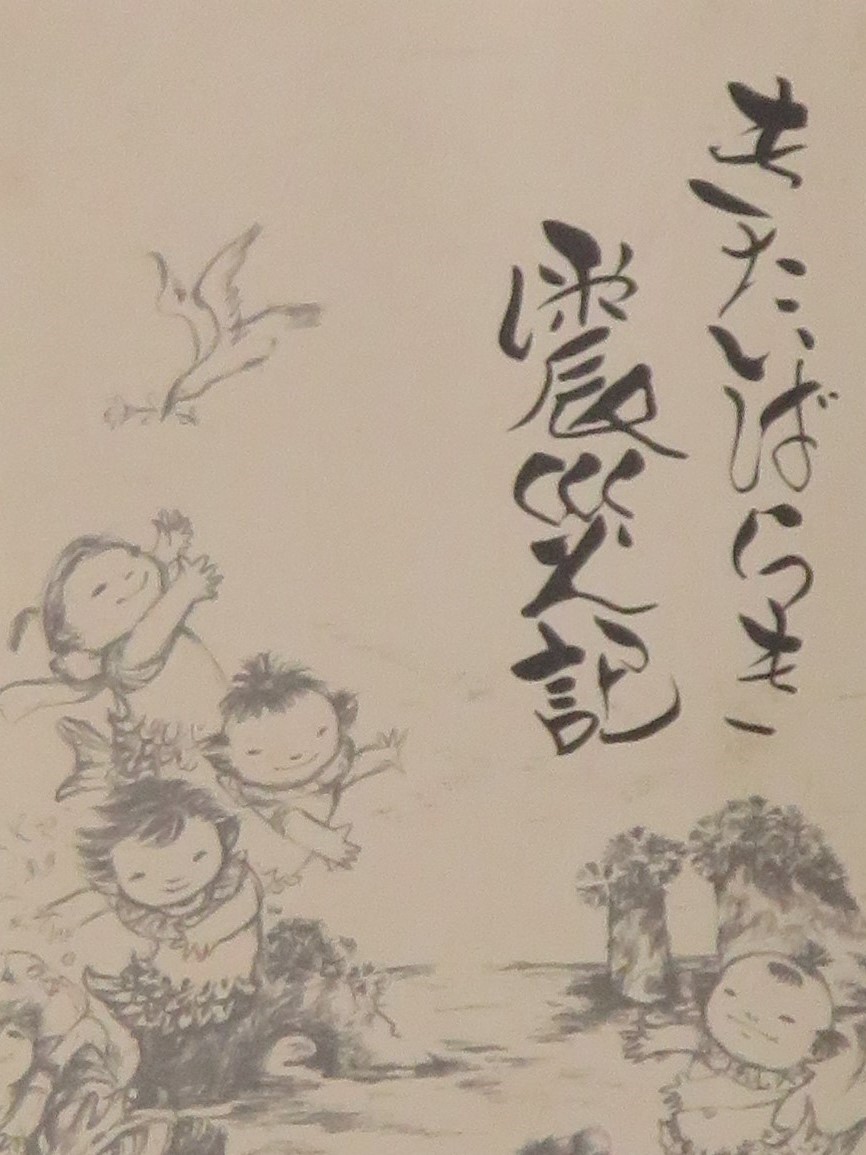 きたいばらき
震災記